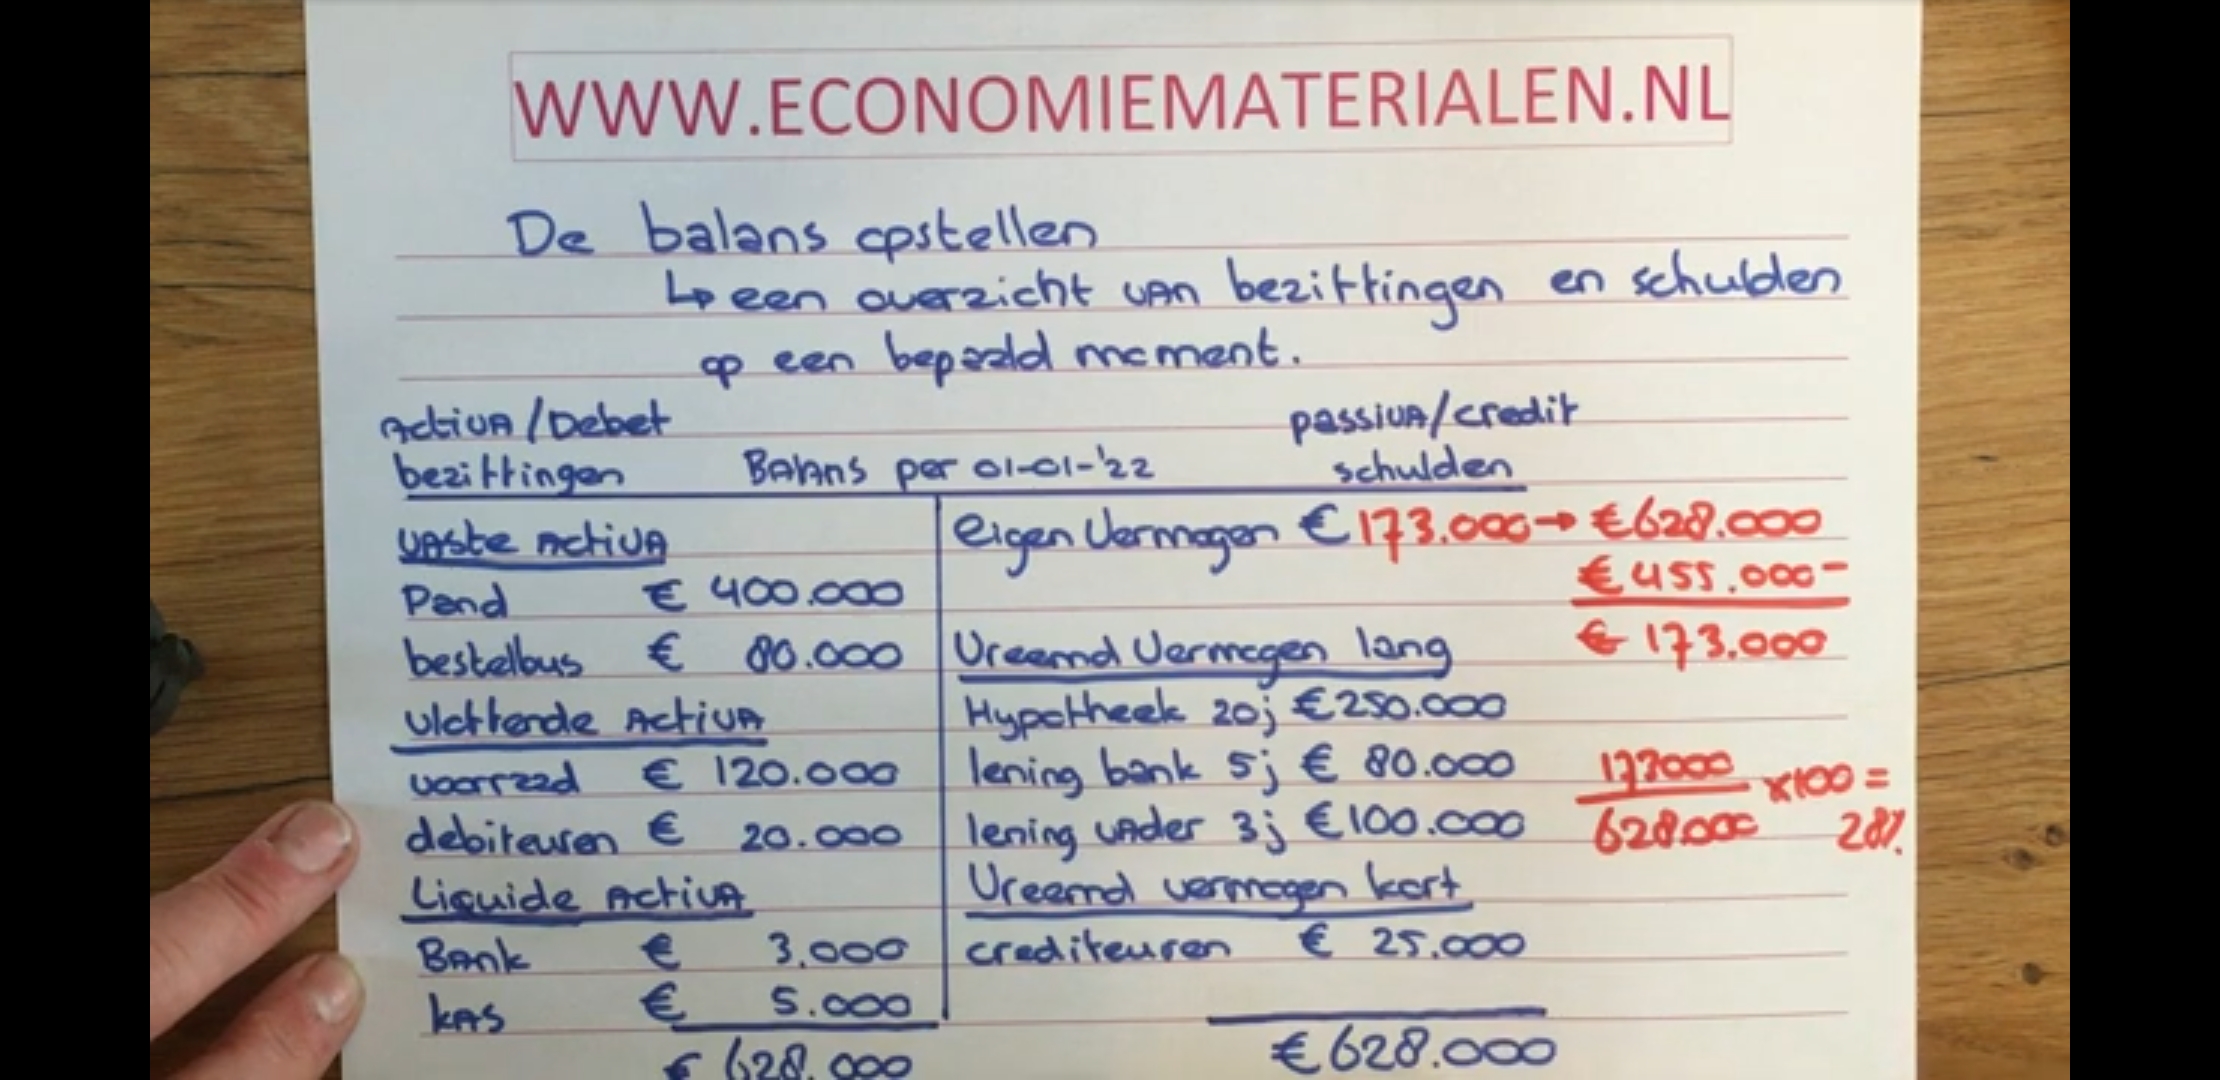 WWW.ECONOMIEMATERIALEN.NL
De balans opstellen
↳ een overzicht van bezittingen en schulden
op een bepaald moment.
Activa/Debet passiva/credit
bezittingen Balans per 01-01-'22 schulden
Vaste Activa
Pand € 400.000
bestelbus € 80.000
Vlottende Activa
voorraad € 120.000
debiteuren € 20.000
Liquide Activa
Bank € 3.000
kas € 5.000
€ 628.000
Eigen Vermogen € 173.000 → € 628.000
€ 455.000 -
€ 173.000
Vreemd Vermogen lang
Hypotheek 20j € 250.000
lening bank 5j € 80.000
lening vader 3j € 100.000
173000
628.000
x100 =
28%
Vreemd vermogen kort
crediteuren € 25.000
€ 628.000